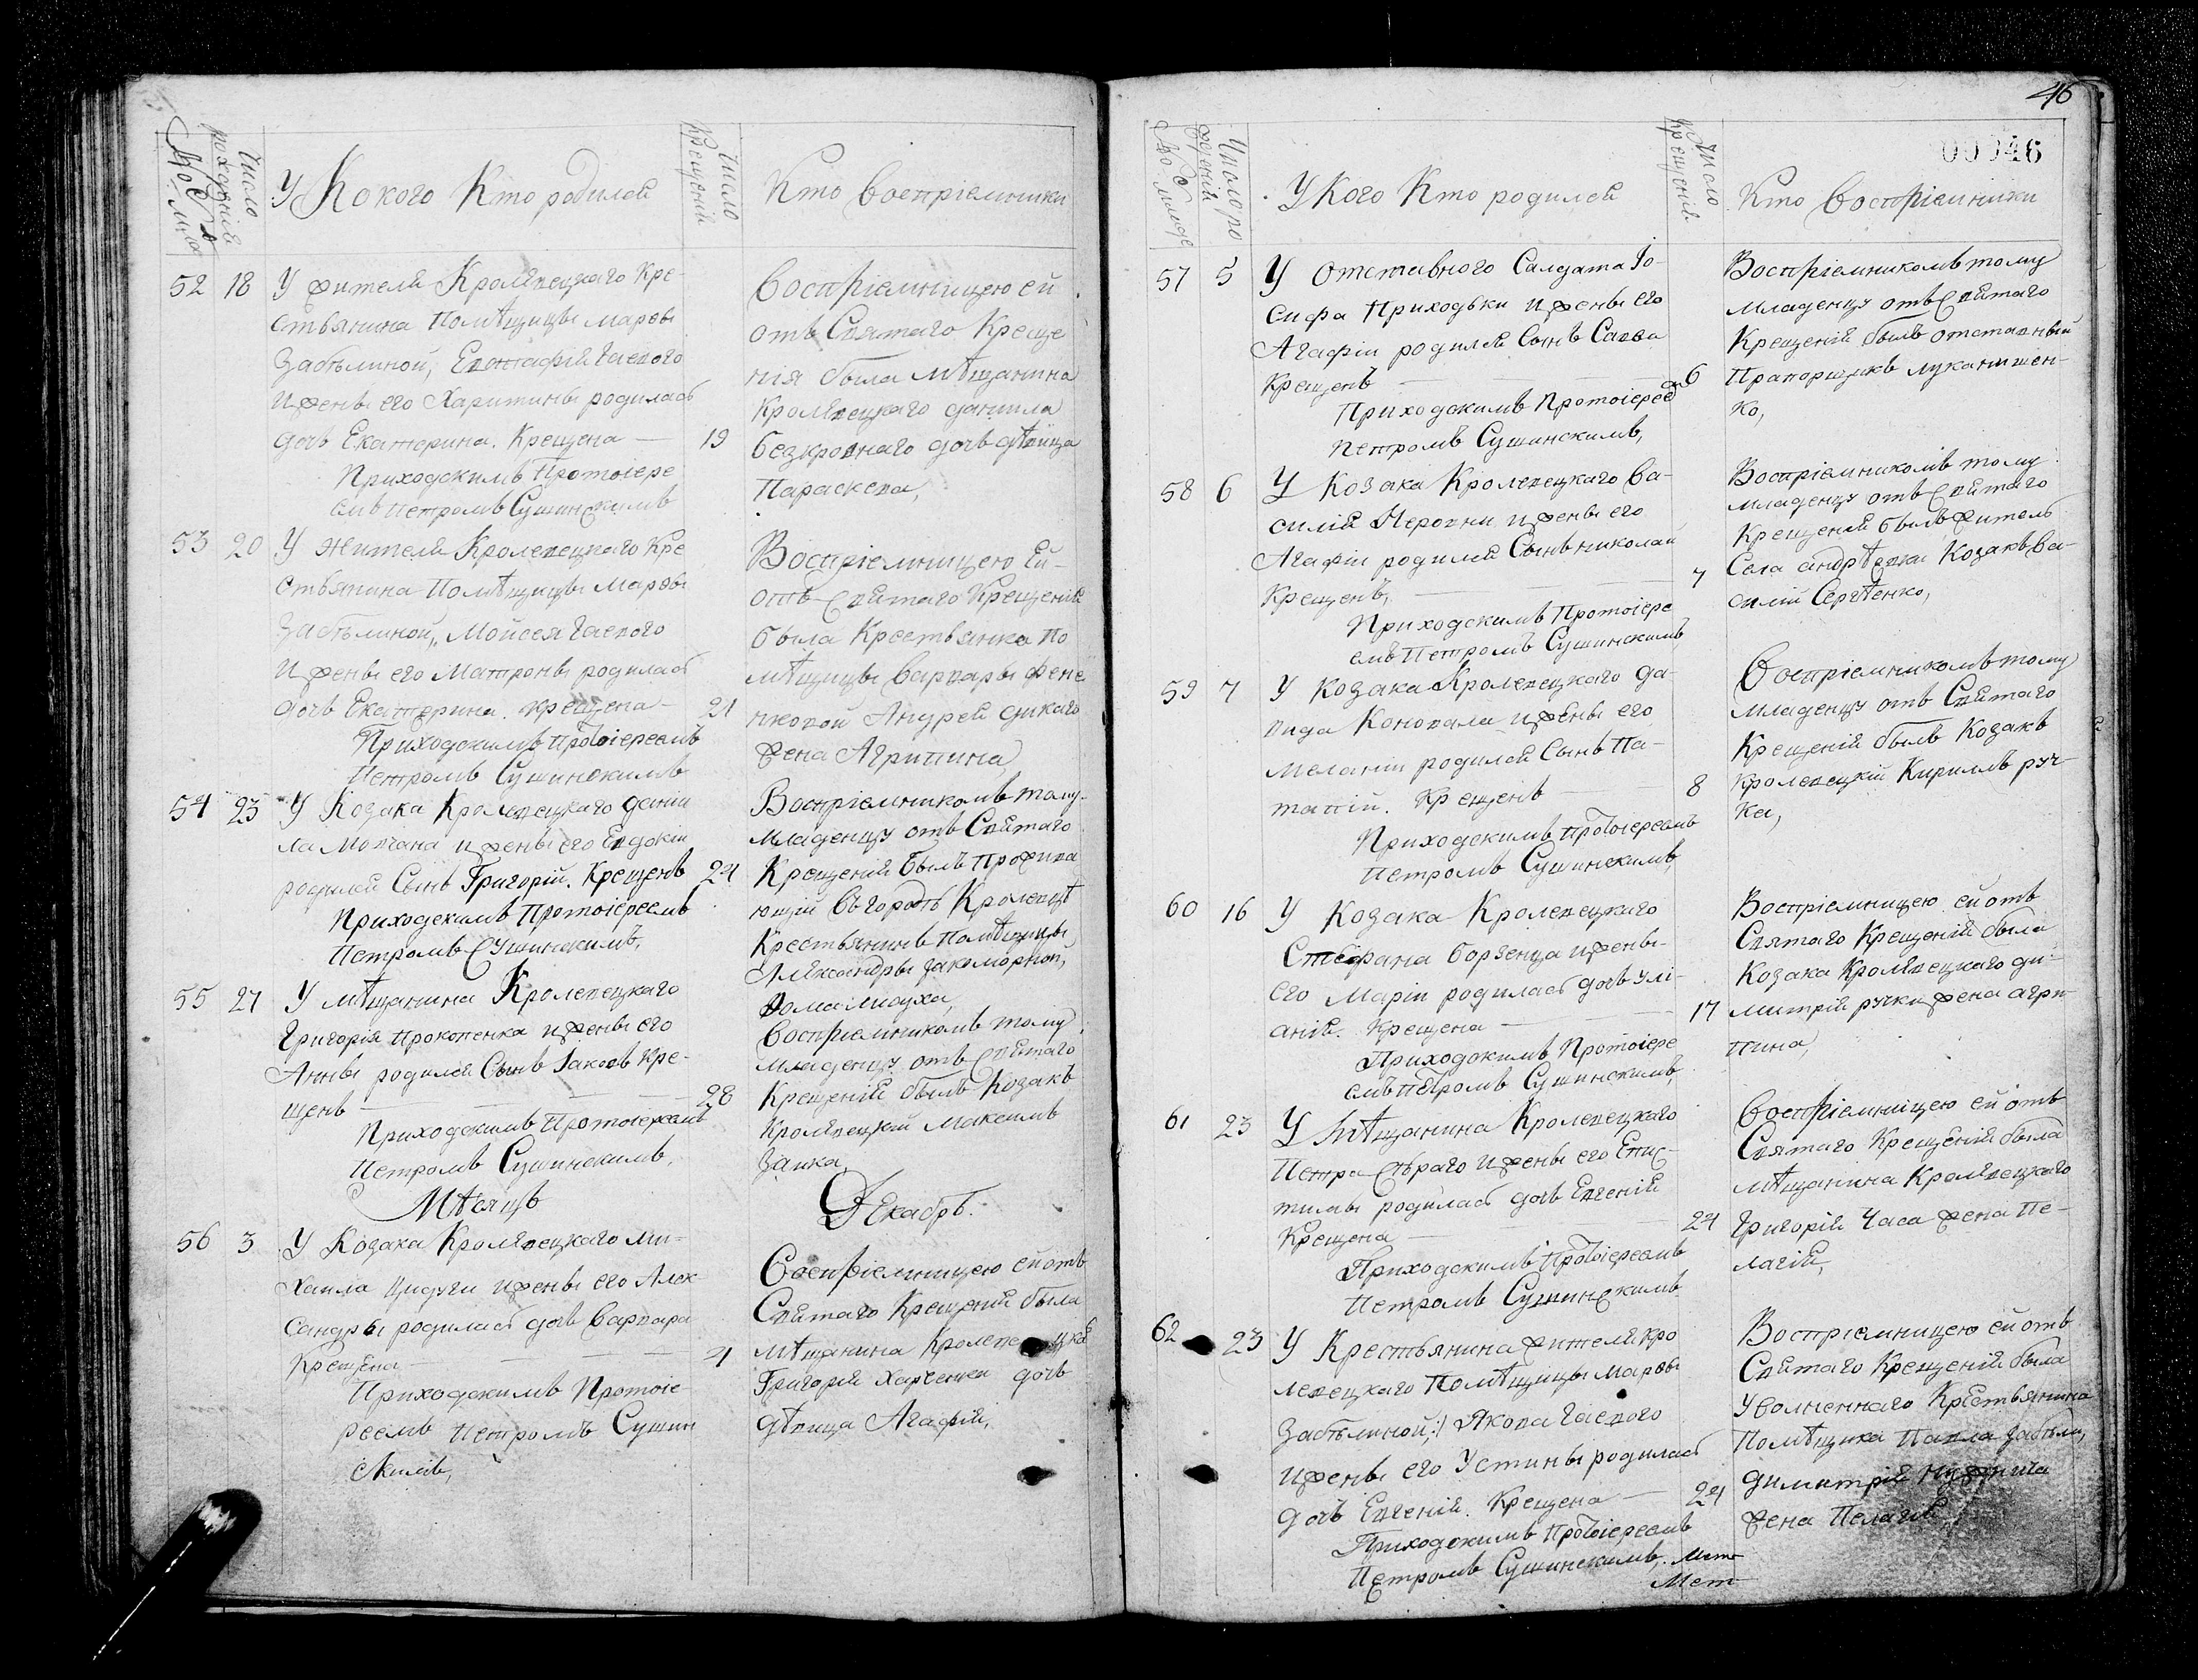 46
00046
№ по
числа
Число
рожденія
У Кокого Кто родился
Число
Крещенія
Кто воспріемники
52 18 У жителя Кролевецкаго Кре-
стьянина Помѣщицы Марѳы
Забѣлиной, Евстафія Гаевого
и жены его Харитины родилась
дочь Екатерина. Крещена — 19
Приходскимъ Протоіере
емъ Петромъ Сушинскимъ
воспріемницею ей
отъ Святаго Креще
нія была мѣщанина
Кролевецкаго данила
безкровнаго дочь дѣвица
Параскева,
53 20 У Жителя Кролевецкаго Кре
стьянина Помѣщицы Марѳы
Забѣлиной, Мойсея Гаевого
и жены его Матроны родилась
дочь Екатерина. крещена — 21
Приходскимъ протоіереемъ
Петромъ Сушинскимъ
Воспріемницею Ей-
отъ Святаго Крещенія
была Крестьянка По
мѣщицы Варвары
Андрея дикаго
жена Агрипина,
54 23 У Козака Кролевецкаго Дании
ла Мовчана и жены его Евдокіи
родился Сынъ Григорій. Крещенъ 24
Приходскимъ Протоіереемъ
Петромъ Сушинскимъ,
Воспріемникомъ тому
младенцу отъ Святаго
Крещенія былъ Прожива
ющій въ городѣ Кролевцѣ
Крестьянинъ Помѣщицы
Александры Закоморной,
Ѳома
55 27 У мѣщанина Кролевецкаго
Григорія Прокопенка и жены его
Анны родился Сынъ Іаковъ Кре-
щенъ — 28
Приходскимъ Протоіереемъ
Петромъ Сушинскимъ,
воспріемникомъ тому
младенцу отъ Святаго
Крещенія былъ Козакъ
Кролевецкій Максимъ
Заика
Мѣсяцъ Декабрь.
56 3 У Козака Кролевецкаго Ми-
хаила Цидуги и жены его Алек-
сандры родилась дочь Варвара
Крещена — 4
Приходскимъ Протоіе-
реемъ Петромъ Сушин
скимъ,
Воспріемницею ей отъ
Святаго Крещенія была
мѣщанина Кролевецкаго
Григорія Харченка дочь
дѣвица Агафія,
У Кого Кто родился
Число
Крещенія
Кто воспріемники
57 5 У отставного Салдата Іо-
сифа Приходьки и жены его
Агафіи родился Сынъ Савва
Крещенъ — 6
Приходскимъ Протоіерее
Петромъ Сушинскимъ,
Воспріемникомъ тому
младенцу отъ Святаго
Крещенія былъ отставный
Прапорщикъ
ко,
58 6 У Козака Кролевецкаго Ва-
силія Неровни и жены его
Агафіи родился Сынъ николай
Крещенъ, — 7
Приходскимъ Протоіере
емъ Петромъ Сушинскимъ,
Воспріемникомъ тому
младенцу отъ Святаго
Крещенія былъ житель
Села андрѣевки Козакъ Ва-
силій Сергѣенко,
59 7 У Козака Кролевецкаго Да-
вида Коновала и жены его
Меланіи родился Сынъ Па-
тапій. Крещенъ — 8
Приходскимъ Протоіереемъ
Петромъ Сушинскимъ,
Воспріемникомъ тому
младенцу отъ Святаго
Крещенія былъ Козакъ
Кролевецкій Кирилъ руч-
ка,
60 16 У Козака Кролевецкаго
Стефана Борзенца и жены-
его Маріи родилась дочь Улі-
анія. Крещена — 17
Приходскимъ Протоіере
емъ Петромъ Сушинскимъ,
Воспріемницею ей отъ
Святаго Крещенія была
Козака Кролевецкаго ди-
митрія ручки жена агри-
пина,
61 23 У Мѣщанина Кролевецкаго
Петра Сѣраго и жены его Епис-
тимы родилась дочь Евгенія
Крещена — 24
Приходскимъ Протоіереемъ
Петромъ Сушинскимъ
воспріемницею ей отъ
Святаго Крещенія была
мѣщанина Кролевецкаго
Григорія Часа жена Пе-
лагія,
62 23 У Крестьянина жителя Кро
левецкаго Помѣщицы Марѳы
Забѣлиной, Якова Гаевого
и жены его Устины родилась
дочь Евгенія. Крещена — 24
Приходскимъ Протоіереемъ
Петромъ Сушинскимъ,
Воспріемницею ей отъ
Святаго Крещенія была
Уволненнаго Крестьянина
Помѣщика Павла Забѣлы,
димитрія
жена Пелагія